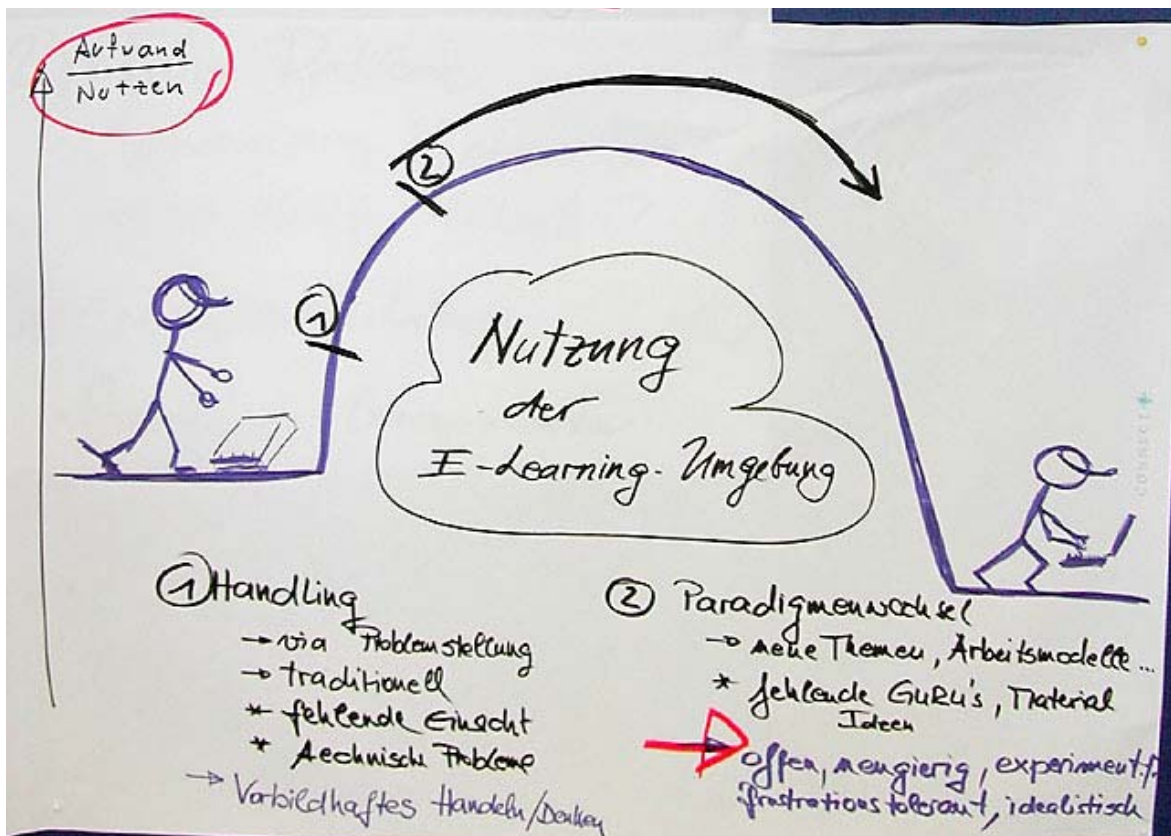 Aufwand
Nutzen
2
1
Nutzung
der
E-Learning-Umgebung
1 Handling
→ via Problemstellung
→ traditionell
* fehlende Einsicht
* technische Probleme
→ Vorbildhaftes Handeln/Denken
2 Paradigmenwechsel
→ neue Themen, Arbeitsmodelle...
* fehlende GURU's, Material
Ideen
→ offen, neugierig, experiment.f.
frustrationstolerant, idealistisch